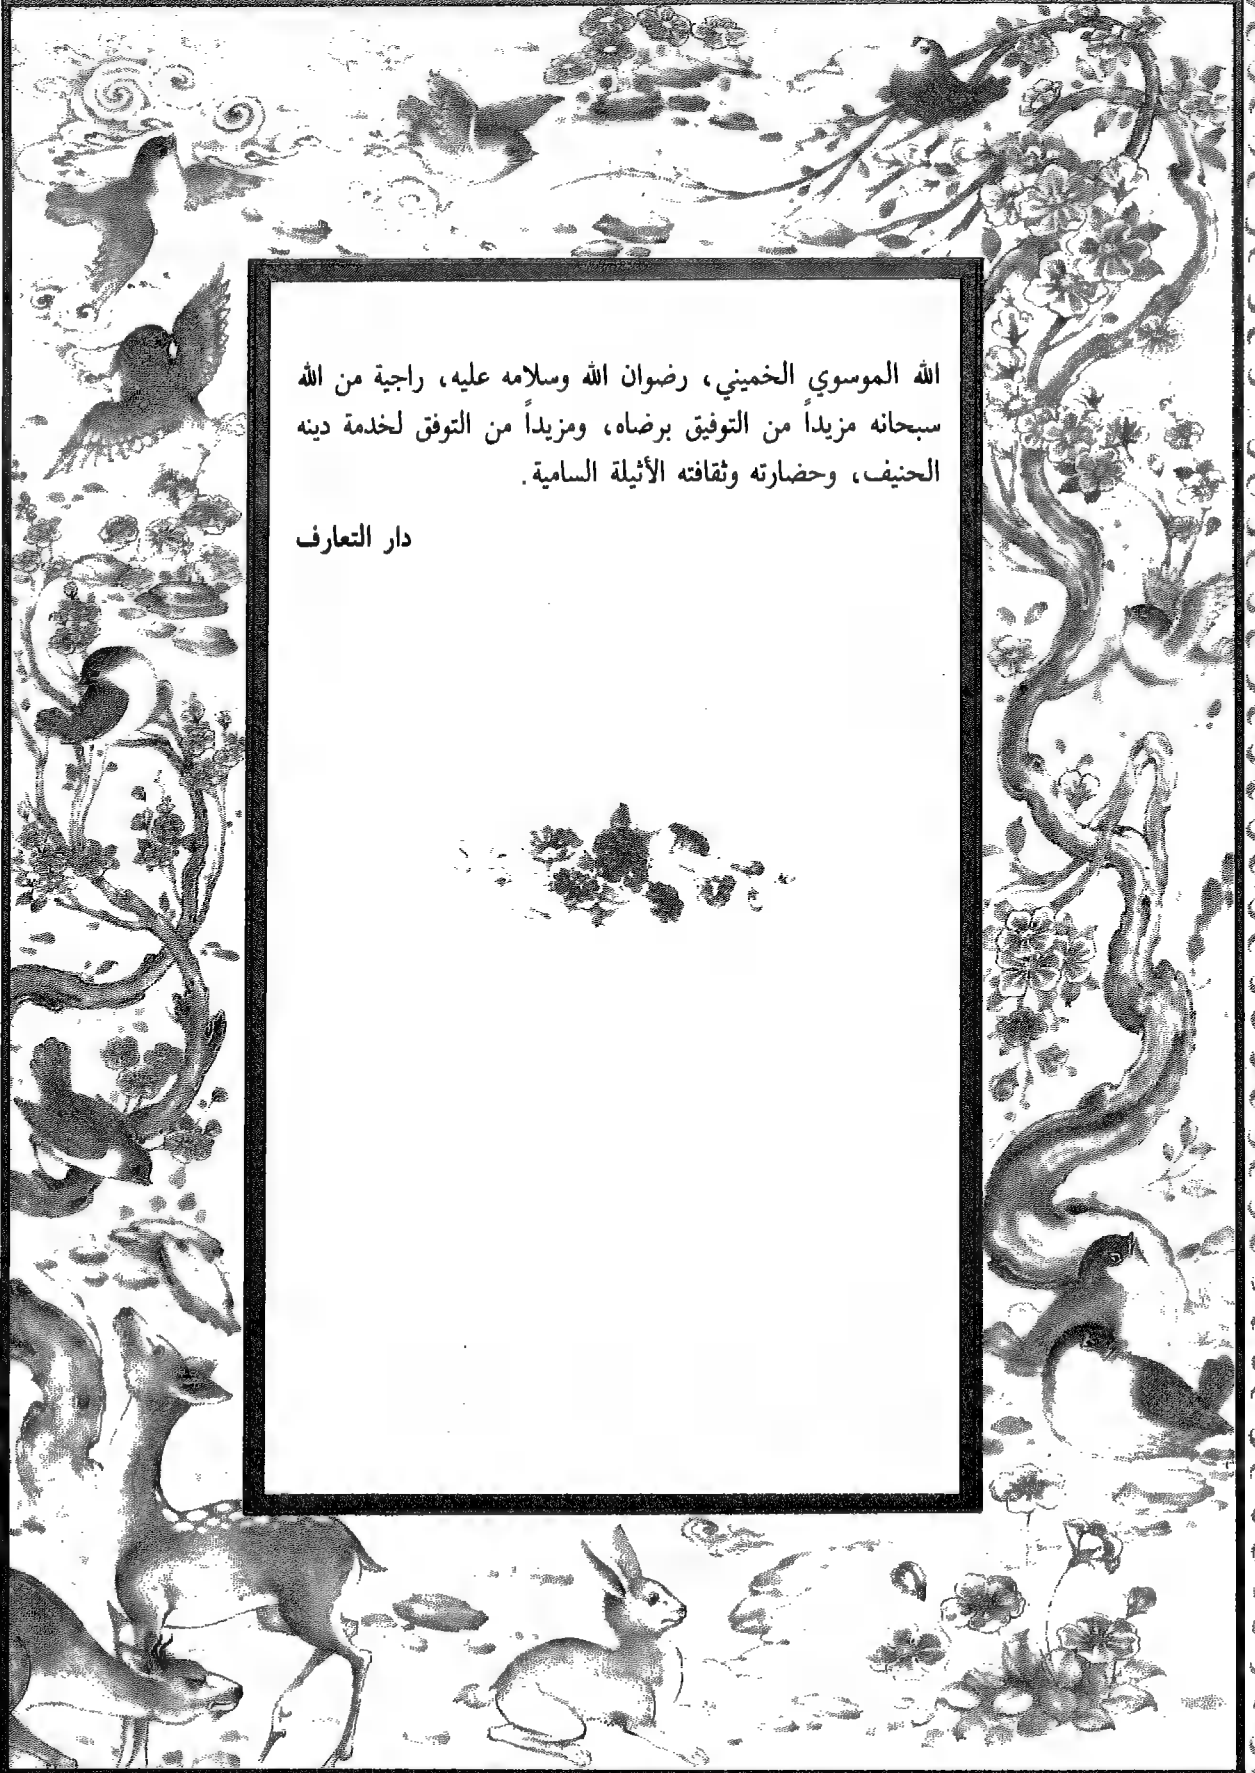 الله الموسوي الخميني، رضوان الله وسلامه عليه، راجية من الله
سبحانه مزيداً من التوفيق برضاه، ومزيداً من التوفق لخدمة دينه
الحنيف، وحضارته وثقافته الأثيلة السامية.
دار التعارف